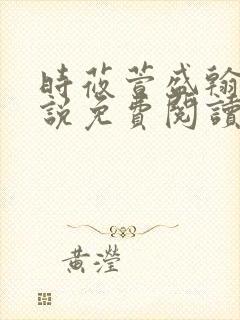 時莜萱盛翰
說免費閱讀
黃瀅